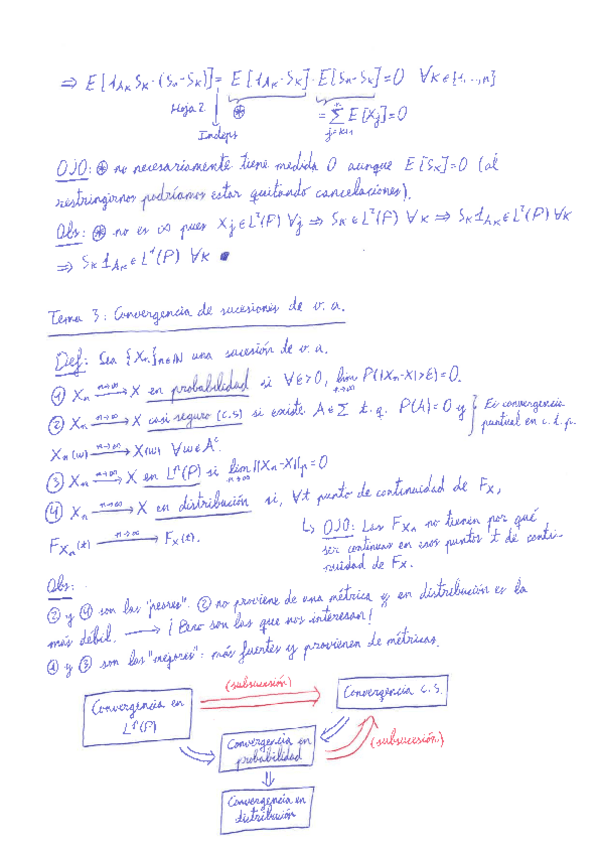 ⇒ E[1_{A_K} S_K · (S_n - S_K)] = E[1_{A_K} · S_K] · E[S_n - S_K] = 0 ∀K∈{1,..,n}
Hoja 2 ⊛ = Σ_{j=K+1}^{n} E[X_j] = 0
Indeps
OJO: ⊛ no necesariamente tiene medida 0 aunque E[S_K]=0 (al
restringirnos podríamos estar quitando cancelaciones).
Obs: ⊛ no es ∞ pues X_j∈L²(P) ∀j ⇒ S_K∈L²(P) ∀K ⇒ S_K 1_{A_K}∈L²(P) ∀K
⇒ S_K 1_{A_K}∈L¹(P) ∀K ■
Tema 3: Convergencia de sucesiones de v.a.
Def: Sea {X_n}_{n∈ℕ} una sucesión de v.a.
① X_n →^{n→∞} X en probabilidad si ∀ε>0, lim_{n→∞} P(|X_n-X|>ε)=0.
② X_n →^{n→∞} X casi seguro (c.s) si existe A∈Σ t.q. P(A)=0 y } Es convergencia
puntual en c.t.p.
X_n(w) →^{n→∞} X(w) ∀w∈A^c.
③ X_n →^{n→∞} X en L^p(P) si lim_{n→∞} ||X_n-X||_p=0
④ X_n →^{n→∞} X en distribución si, ∀t punto de continuidad de F_X,
F_{X_n}(t) →^{n→∞} F_X(t).
↳ OJO: Las F_{X_n} no tienen por qué
ser continuas en esos puntos t de conti-
nuidad de F_X.
Obs:
② y ④ son las "peores". ② no proviene de una métrica y en distribución es la
más débil. → ¡Pero son las que nos interesan!
① y ③ son las "mejores": más fuertes y provienen de métricas.
(subsucesión)
Convergencia en
L^p(P)
Convergencia c.s.
Convergencia en
probabilidad
(subsucesión)
Convergencia en
distribución